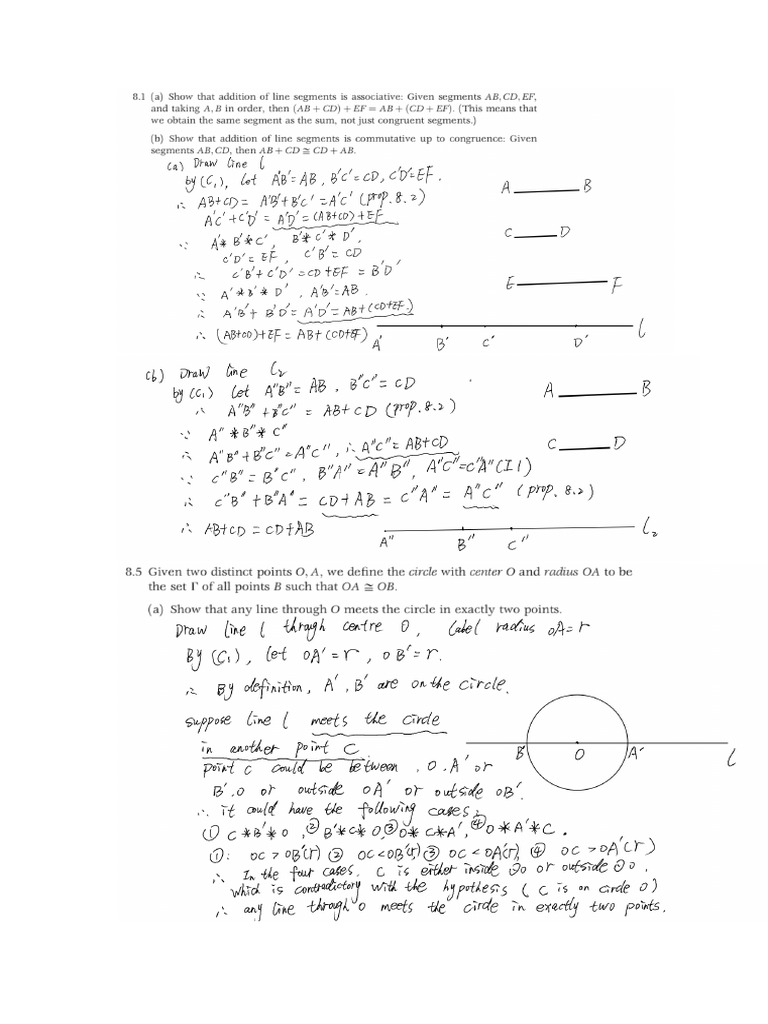 8.1 (a) Show that addition of line segments is associative: Given segments AB, CD, EF,
and taking A, B in order, then (AB + CD) + EF = AB + (CD + EF). (This means that
we obtain the same segment as the sum, not just congruent segments.)
(b) Show that addition of line segments is commutative up to congruence: Given
segments AB, CD, then AB + CD ≅ CD + AB.
(a) Draw line l
by (C1), let A'B' = AB, B'C' = CD, C'D' = EF.
∴ AB+CD = A'B'+B'C' = A'C' (prop. 8.2)
A'C' + C'D' = A'D' = (AB+CD)+EF
∵ A'*B'*C', B'*C'*D',
C'D' = EF, C'B' = CD
∴ C'B' + C'D' = CD+EF = B'D'
∵ A'*B'*D', A'B' = AB.
∴ A'B' + B'D' = A'D' = AB+(CD+EF.)
∴ (AB+CD)+EF = AB+(CD+EF)
A B
C D
E F
A' B' C' D' l
(b) Draw line l2
by (C1) let A"B" = AB, B"C" = CD
∴ A"B" + B"C" = AB+CD (prop. 8.2)
∵ A"*B"*C"
∴ A"B" + B"C" = A"C", ∴ A"C" = AB+CD
∵ C"B" = B"C", B"A" = A"B", A"C" = C"A" (I1)
∴ C"B" + B"A" = CD+AB = C"A" = A"C" (prop. 8.2)
∴ AB+CD = CD+AB
A B
C D
A" B" C" l2
8.5 Given two distinct points O, A, we define the circle with center O and radius OA to be
the set Γ of all points B such that OA ≅ OB.
(a) Show that any line through O meets the circle in exactly two points.
Draw line l through centre O, label radius OA = r
By (C1), let OA' = r, OB' = r.
∴ By definition, A', B' are on the circle.
suppose line l meets the circle
in another point C.
point C could be between, O.A' or
B'.O or outside OA' or outside OB'.
∴ it could have the following cases:
① C*B'*O, ② B'*C*O, ③ O*C*A', ④ O*A'*C.
①: OC > OB'(r) ② OC < OB'(r) ③ OC < OA'(r), ④ OC > OA'(r)
∴ In the four cases, C is either inside ⊙O or outside ⊙O,
which is contradictory with the hypothesis (C is on circle O)
∴ any line through O meets the circle in exactly two points.
B' O A' l